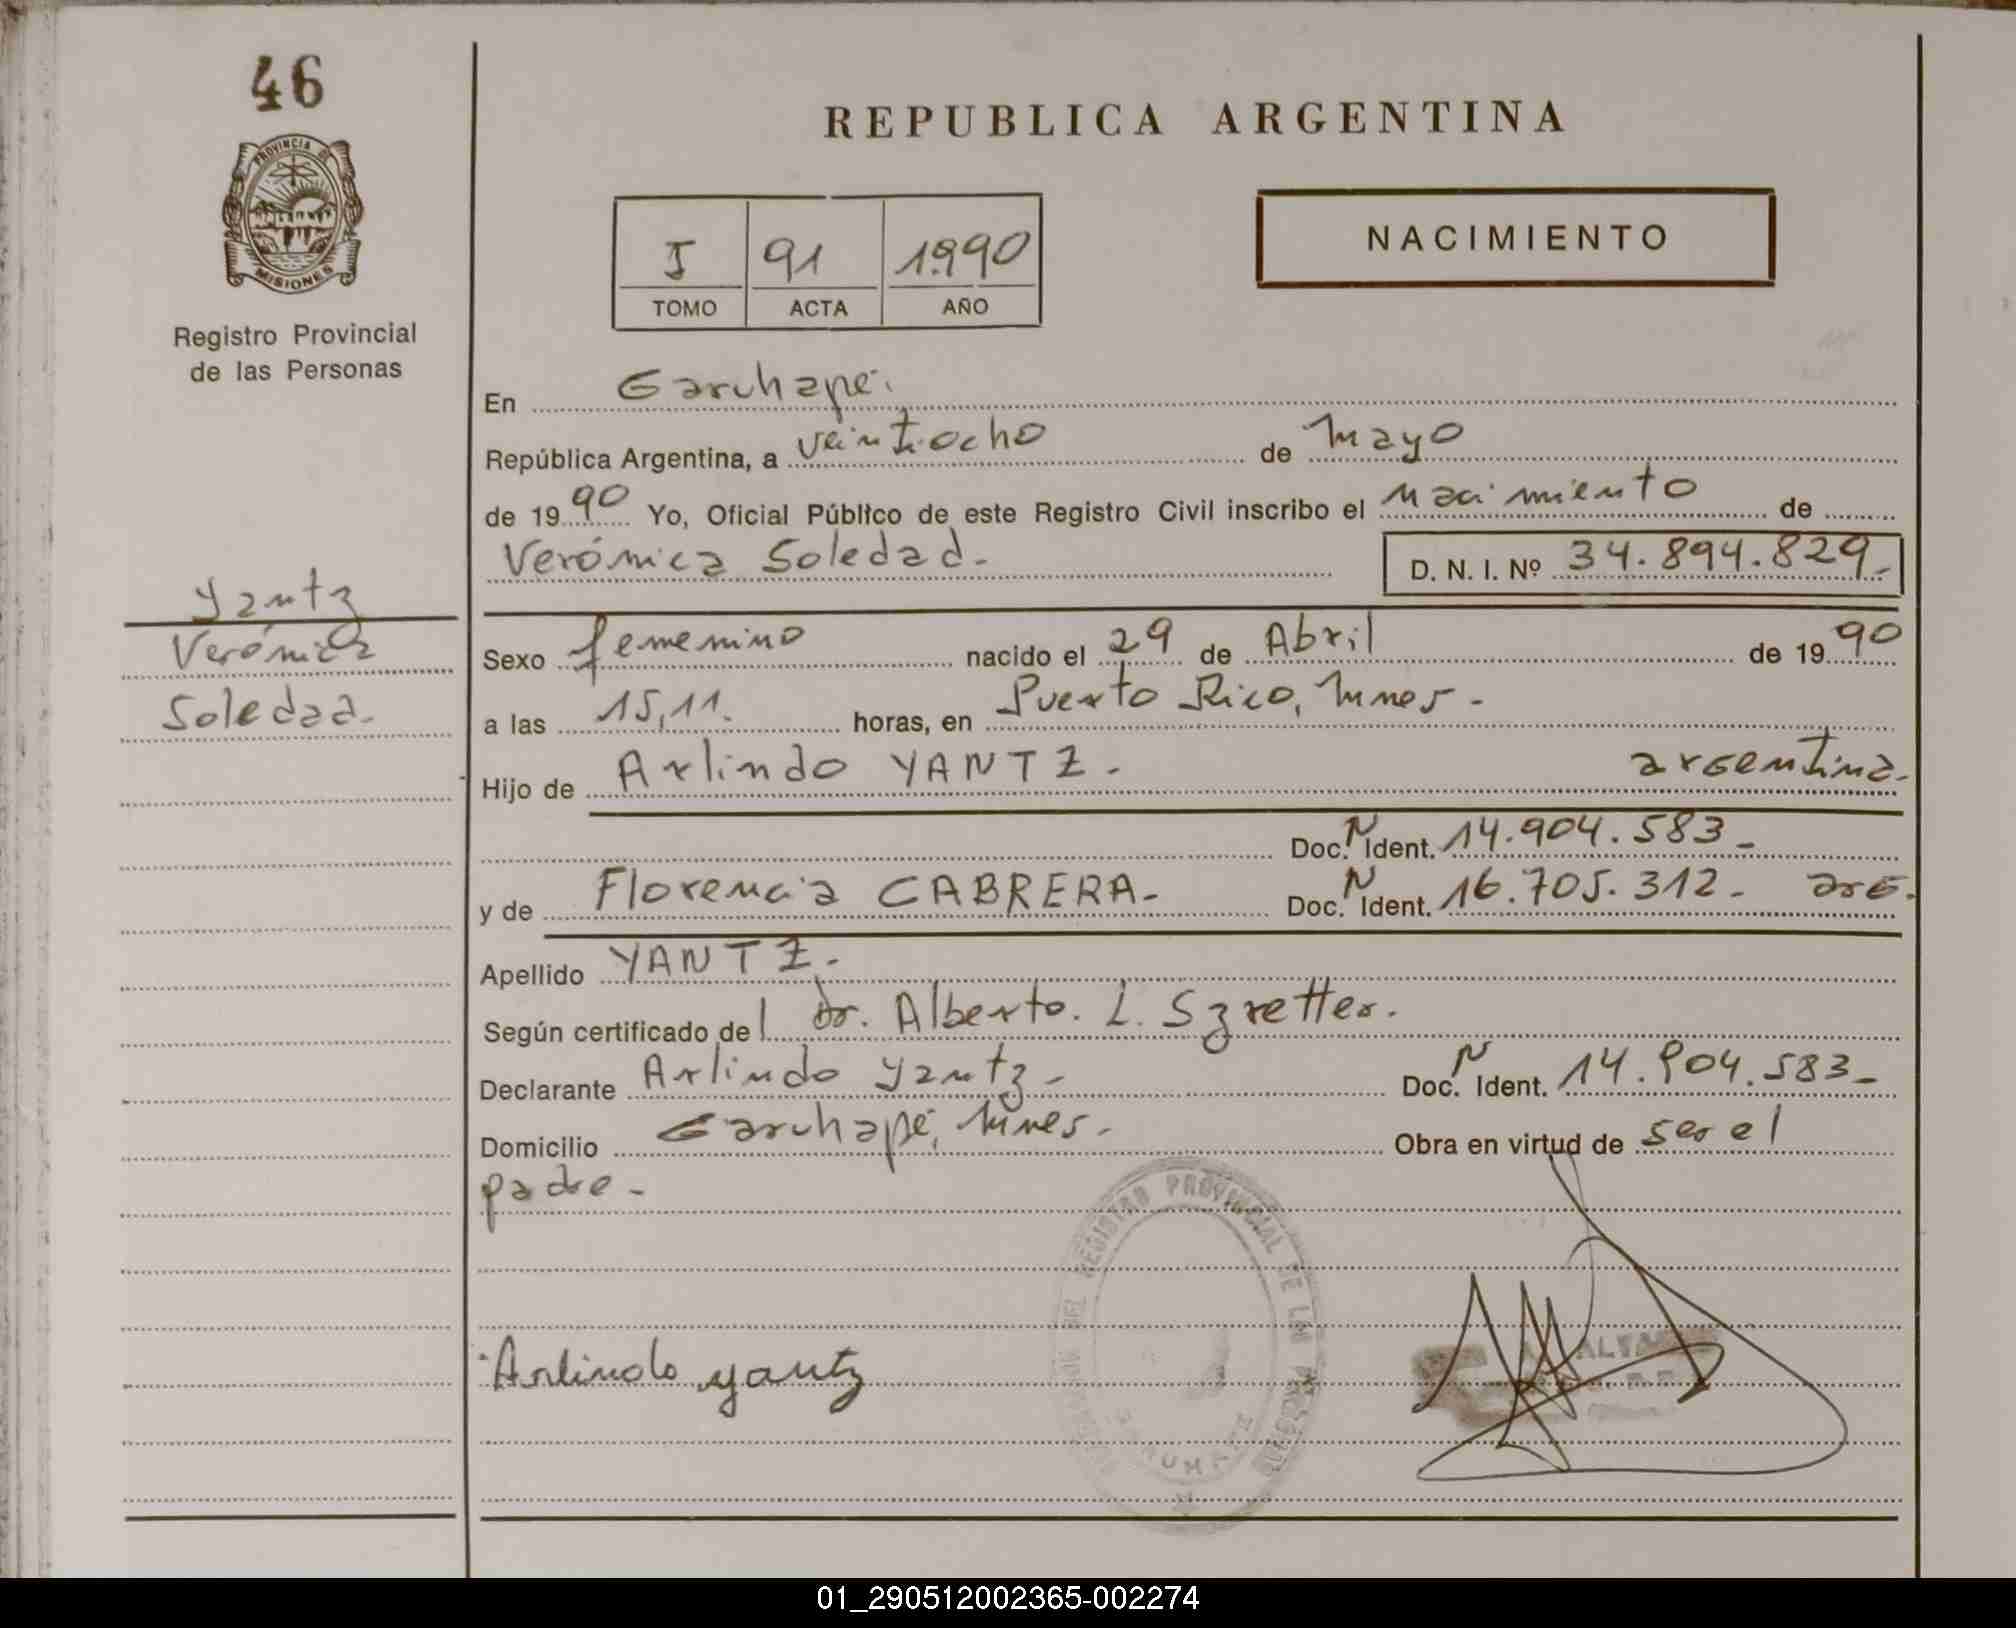 46
REPUBLICA ARGENTINA
PROVINCIA DE
MISIONES
Registro Provincial
de las Personas
I 91 1990
TOMO ACTA AÑO
NACIMIENTO
En Garuhapé.
República Argentina, a veintiocho de mayo
de 1990 Yo, Oficial Público de este Registro Civil inscribo el nacimiento de
Verónica Soledad.- D. N. I. Nº 34.894.829.-
Yantz
Verónica
Soledad.
Sexo femenino nacido el 29 de Abril de 1990
a las 15,11. horas, en Puerto Rico, Mnes.-
Hijo de Arlindo YANTZ. argentina.
Doc. N Ident. 14.904.583-
y de Florencia CABRERA- Doc. N Ident. 16.705.312- arg.
Apellido YANTZ.
Según certificado del Dr. Alberto. L. Szretter.
Declarante Arlindo Yantz- Doc. N Ident. 14.904.583-
Domicilio Garuhapé, Mnes.- Obra en virtud de ser el
padre-
DEL REGISTRO PROVINCIAL DE LAS PERSONAS
Arlindo yantz
01_290512002365-002274